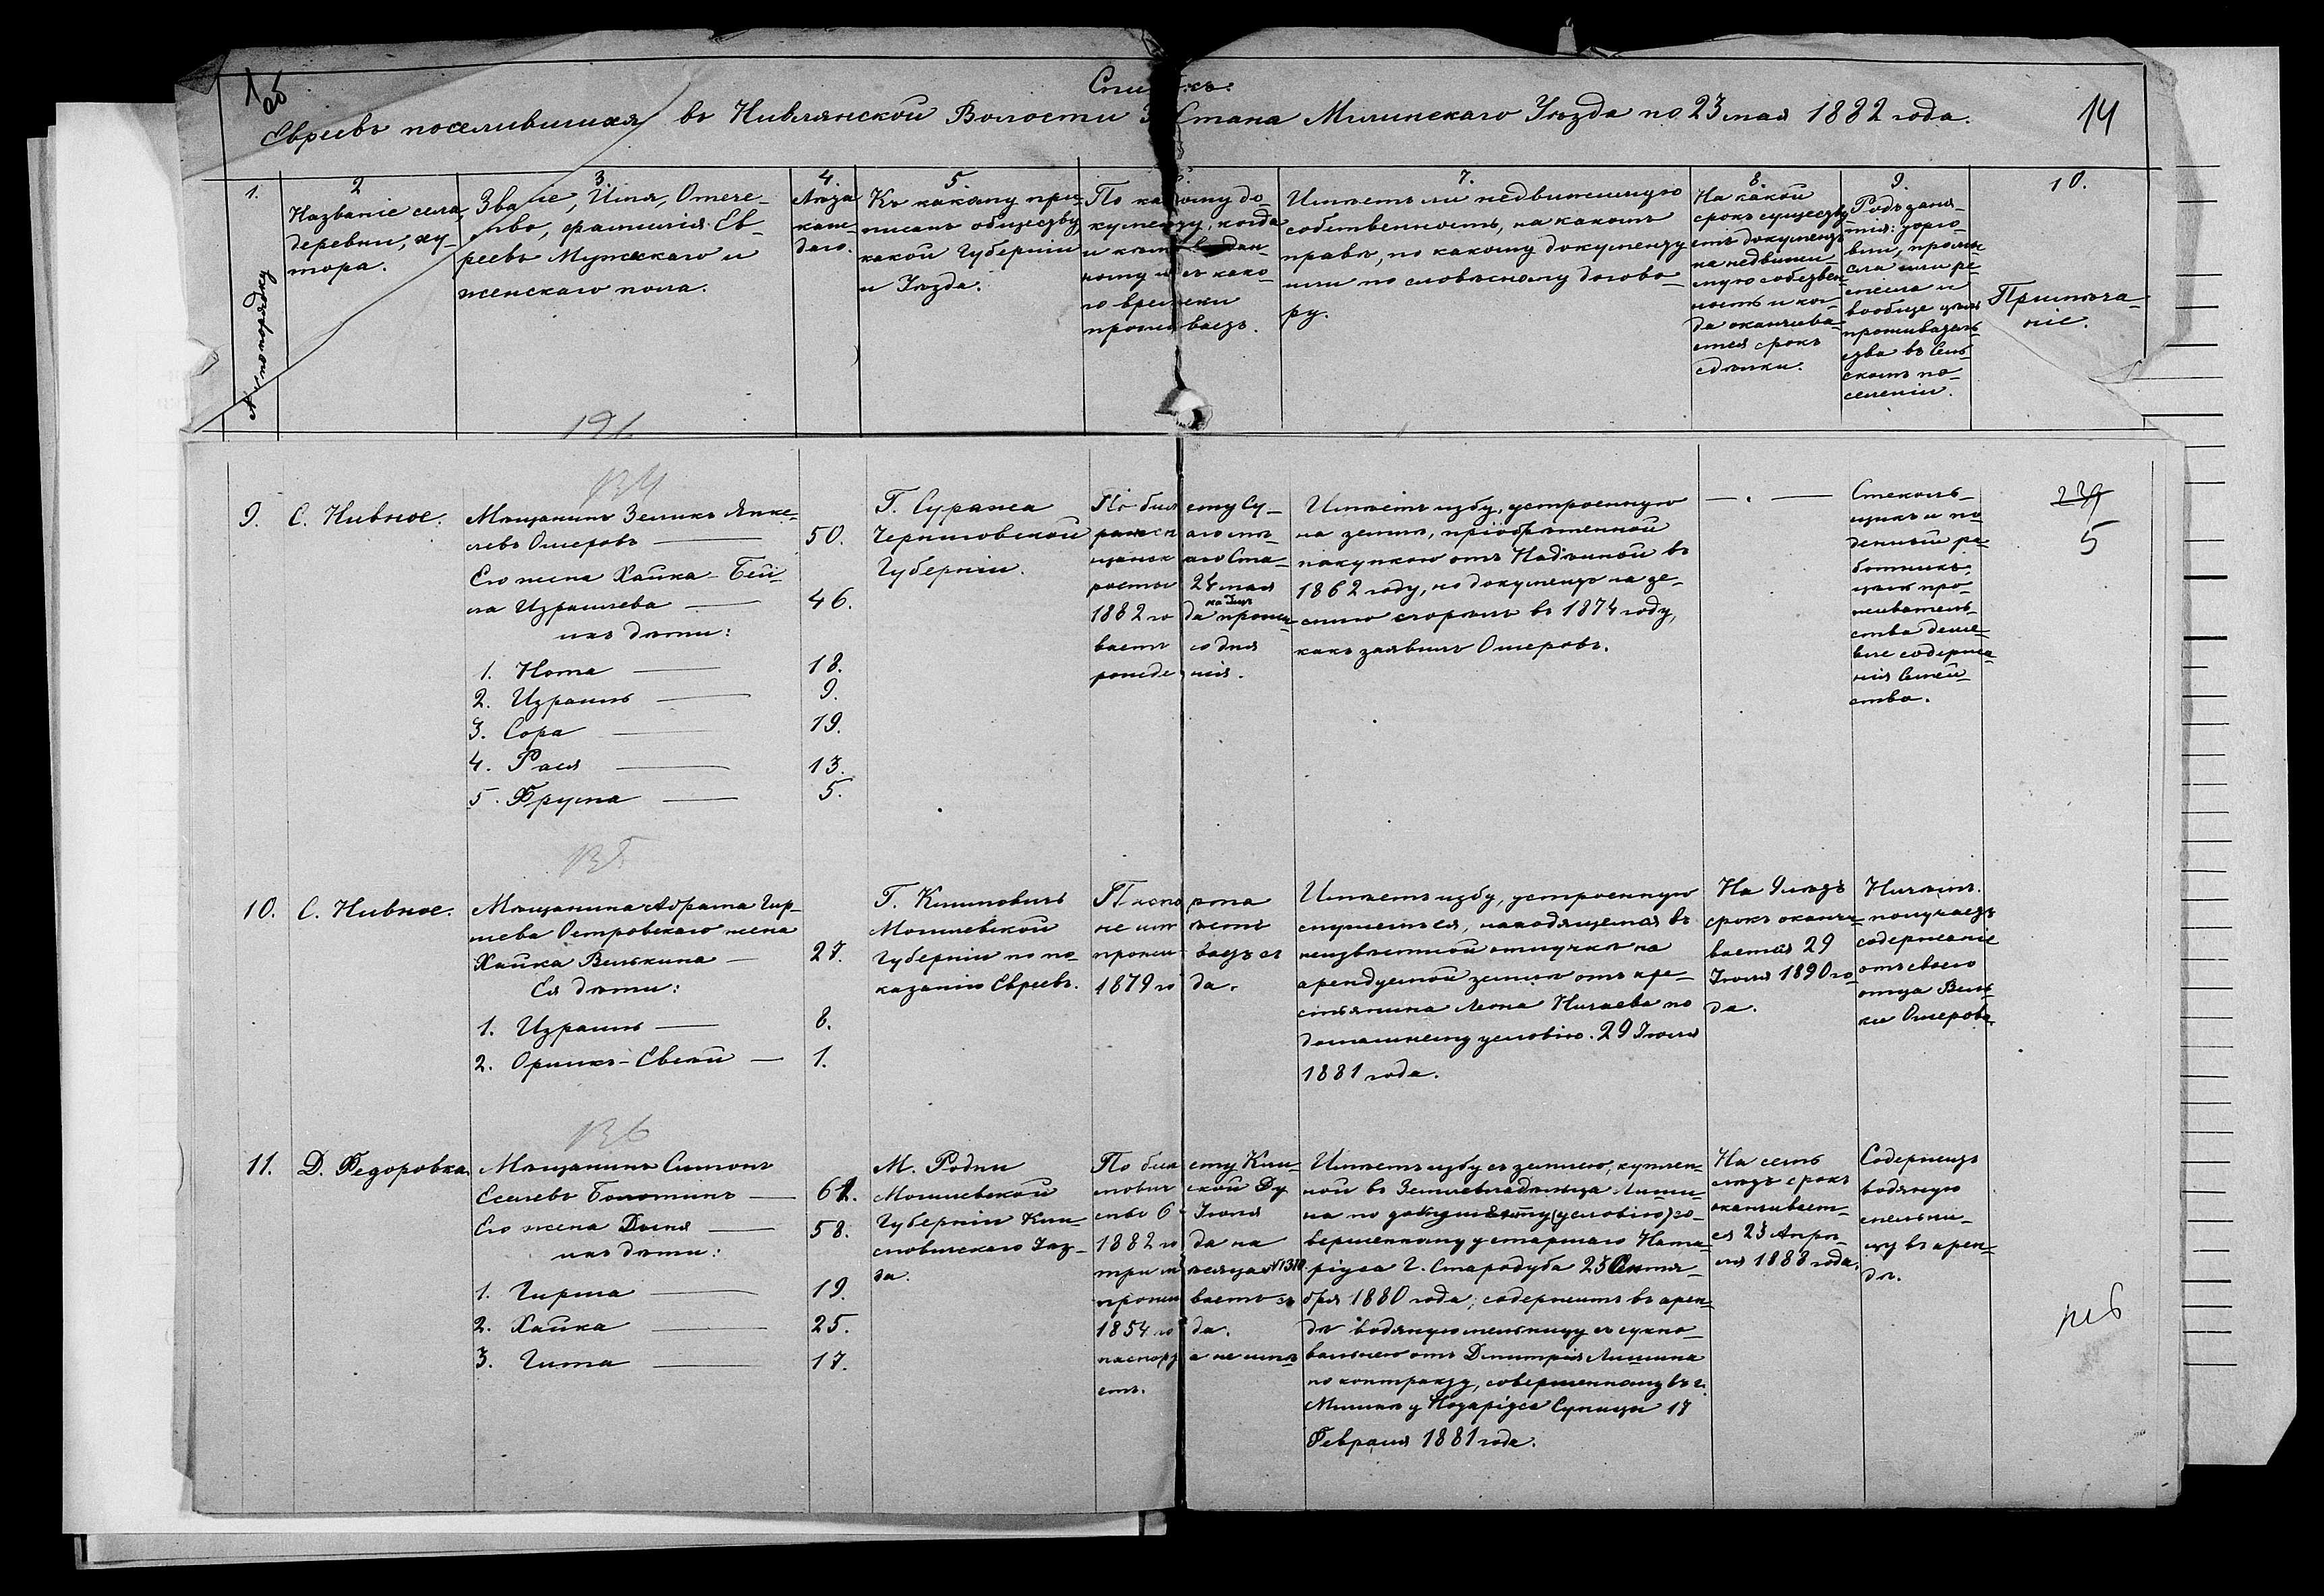 1 об
Списокъ
Евреевъ поселившихся въ Нивлянской Волости 3 Стана Мглинскаго Уѣзда по 23 мая 1882 года.
14
1.
№ по порядку
2
Названіе села,
деревни, ху-
тора.
3.
Званіе, Имя, Отече-
ство, фамилія Ев-
реевъ Мужскаго и
женскаго пола.
4.
Лѣта
каж-
даго.
5.
Къ какому при-
писанъ обществу
какой Губерніи
и Уѣзда.
По какому до-
кументу, когда
и кѣмъ выдан-
ному и съ како-
го времени
проживаетъ.
7.
Имѣетъ ли недвижимую
собственность, на какомъ
правѣ, по какому документу
или по словѣсному догово-
ру.
8.
На какой
срокъ существу-
етъ документъ
на недвижи-
мую собствен-
ность и ког-
да оканчива-
ется срокъ
сдѣлки.
9.
Родъ заня-
тія: торго-
вли, промы-
сла или ре-
месла и
вообще цѣль
проживатель-
ства въ Сель-
скомъ по-
селеніи.
10.
Примѣча-
ніе.
191
134
9.
С. Нивное.
Мѣщанинъ Зеликъ Янке-
левъ Омеровъ — 50.
Его жена Хайка-Бей-
ла Израилева — 46.
ихъ дѣти:
1. Нота — 18.
2. Израиль — 9.
3. Сора — 19.
4. Рася — 13.
5. Фрума — 5.
Г. Суража
Черниговской
Губерніи.
По билету Су-
ражскаго мѣ-
щанскаго Ста-
росты 24 мая
1882 го на 3 мц.
да прожи-
ваетъ со дня
рожденія.
Имѣетъ избу, устроенную
на землѣ, пріобрѣтенной
покупкою отъ Надѣиной въ
1862 году, но документъ на зе-
млю сгорѣлъ въ 1874 году,
какъ заявилъ Омеровъ.
— . —
Стеколь-
щикъ и по-
денный ра-
ботникъ,
цѣль про-
живатель-
ства деше-
вле содержа-
нія Семей-
ства.
239
5
135
10.
С. Нивное.
Мѣщанина Абрама Гир-
шева Островскаго жена
Хайка Велькина — 27.
Ея дѣти:
1. Израиль — 8.
2. Орикъ-Евсѣй — 1.
Г. Климовичъ
Могилевской
Губерніи по по-
казанію Евреевъ.
Паспорта
не имѣетъ
проживаетъ съ
1879 года.
Имѣетъ избу, устроенную
мужемъ ея, находящемся въ
неизвѣстной отлучкѣ на
арендуемой землѣ отъ кре-
стьянина Лета Ничаева по
домашнему условію. 29 Іюля
1881 года.
На 9 лѣтъ
срокъ оканчи-
вается 29
Іюля 1890 го-
да.
Ничѣмъ.
получаетъ
содержаніе
отъ своего
отца Вель-
ки Омерова.
136
11.
Д. Федоровка.
Мѣщанинъ Симонъ
Еселевъ Болотинъ — 62.
Его жена Дыня — 58.
ихъ дѣти:
1. Гирша — 19.
2. Хайка — 25.
3. Гита — 17.
М. Родни
Могилевской
Губерніи Кли-
мовичскаго Уѣз-
да.
По билету Кли-
мовичской Ду-
мы 6 Іюня
1882 года на
три мѣсяца №1310
проживаетъ съ
1854 года.
паспорта не имѣ-
етъ.
Имѣетъ избу съ землею, куплен-
ной въ Землевладѣльца Лиши-
на по документу (условію) со-
вершенному у старшаго Нота-
ріуса Г. Стародуба 23 Октя-
бря 1880 года; содержитъ въ арен-
дѣ водяную мельницу съ сукно-
вальнею отъ Дмитрія Лишина
по контракту, совершенному въ г.
Мглинѣ у Нотаріуса Сулицы 17
Февраля 1881 года.
На семь
лѣтъ срокъ
оканчивает-
ся 23 Апрѣ-
ля 1888 года.
Содержитъ
водяную
мельни-
цу въ арен-
дѣ.